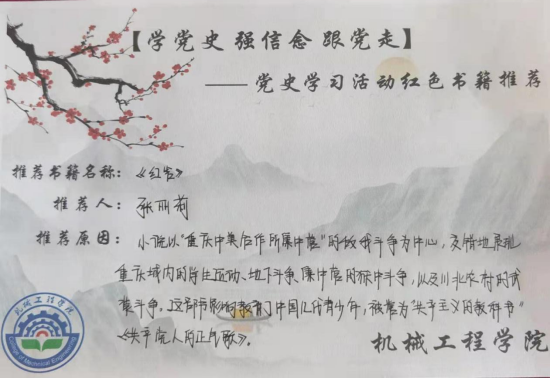 【学党史 强信念 跟党走】
——党史学习活动红色书籍推荐
推荐书籍名称：《红岩》
推荐人：张丽莉
推荐原因：小说以“重庆中美合作所集中营”的敌我斗争为中心，交错地展现
重庆城内的学生运动、地下斗争、集中营的狱中斗争，以及川北农村的武
装斗争。这部书影响教育了中国几代青少年，被誉为“共产主义的教科书”
《共产党人的正气歌》。
机械工程学院
机械工程学院
College of Mechanical Engineering